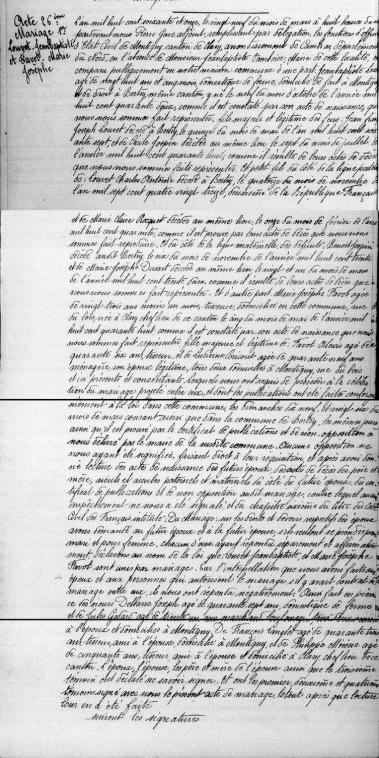 Acte 26ème
Mariage
Louvet Jeanbaptiste
et Pavot Marie
Josephe
L'an mil huit cent soixante et onze, le vingt neuf du mois de mars à huit heures du
pardevant nous Pierre adjoint, remplissant par délégation les fonctions d'officier
d'Etat Civil de Montigny, canton de Clary, arrondissement de Cambrai, département
du Nord en l'absence de monsieur Jeanbaptiste maire de cette localité,
comparu publiquement en notre maison commune d'une part Jeanbaptiste Louvet
agé de vingt huit ans et cinq mois, domestique de ferme, domicilié de fait à Montigny
et de droit à Bertry même canton, né le neuf du mois d'octobre de l'année mil
huit cent quarante deux, comme il est constaté par son acte de naissance, que
nous nous sommes fait représenter, fils majeur et légitime des feus Jean
Joseph Louvet décédé à Bertry, le quinze du mois de mai de l'an mil huit cent
sept, et de décédée au même lieu le sept du mois de juillet de
l'année mil huit cent quarante trois, comme il résulte de leurs actes de décès
que nous nous sommes faits représenter. Et petit fils du côté de la ligne paternelle
de Louvet Charles Antoine décédé à Bertry, le quatorze du mois de novembre
l'an mil sept cent quatre vingt treize, deuxième de la République Française
et de Marie Claire décédée au même lieu, le onze du mois de février de l'année
mil huit cent quarante, comme il est prouvé par leurs actes de décès que nous nous
sommes fait représenter, et du côté de la ligne maternelle, des défunts, Benoit
décédé audit Bertry, le dix du mois de novembre de l'année mil huit cent trente
et de Marie Josephe Dusart décédée au même lieu le vingt et un du mois de mars
de l'année mil huit cent trente deux, comme il résulte de leurs actes de décès que
nous nous sommes fait représenter. Et d'autre part Marie Josephe Pavot agée
de vingt trois ans moins un mois, domiciliée en cette commune, rue
née à Clary chef lieu de ce canton le cinq du mois de mai de l'année mil
huit cent quarante huit comme il est constaté par son acte de naissance que nous
nous sommes fait représenter fille majeure et légitime de Pavot Alexis agé de
quarante six ans, tisseur, et de agée de quarante neuf ans
ménagère, son épouse légitime, tous deux domiciliés à Montigny, rue du bois
et ici présents et consentants, lesquels nous ont requis de procéder à la célébra-
tion du mariage projeté entre eux, et dont les publications ont été faites conformé-
mément à la loi dans cette commune, les dimanches dix neuf et vingt six du
mois de mars courant ainsi que dans la commune de Bertry, les mêmes jours
ainsi qu'il est prouvé par le certificat de publications et de non opposition à
nous délivré par le maire de la susdite commune. Aucune opposition ne
nous ayant été signifiée, faisant droit à leur réquisition, et après avoir don-
né lecture des actes de naissance des futurs époux, des actes de décès des père et
mère, aïeuls et aïeules paternels et maternels du côté du futur époux, du cer-
tificat de publications et de non opposition audit mariage, contre lequel aucun
empêchement ne nous a été signalé, et du chapitre sixième du titre du Code
Civil des Français intitulé Du Mariage, sur les droits et devoirs respectifs des époux
avons demandé au futur époux et à la future épouse s'ils veulent se prendre pour
mari et pour femme, chacun d'eux ayant répondu séparément et affirmative-
ment déclarons au nom de la loi que Louvet Jeanbaptiste et Marie Josephe
Pavot sont unis par mariage. Sur l'interpellation que nous avons faite aux
époux et aux personnes qui autorisent le mariage, s'il y avait contrat de
mariage entre eux, ils nous ont répondu négativement. Etant fait en présen-
ce des sieurs Joseph agé de quarante sept ans, domestique de ferme
et de Jules agé de trente un ans,
à l'époux et domiciliés à Montigny. De François agé de quarante trois
ans tisseur, ami à l'épouse domicilié à Montigny, et de Philippe agé
de cinquante ans, tisseur, ami à l'épouse et domicilié à Clary chef lieu de ce
canton. L'époux, l'épouse, les père et mère de l'épouse ainsi que le troisième
témoin ont déclaré ne savoir signer. Et ont les premier, deuxième et quatrième
témoins signé avec nous le présent acte de mariage, le tout après que lecture
leur en a été faite
suivent les signatures